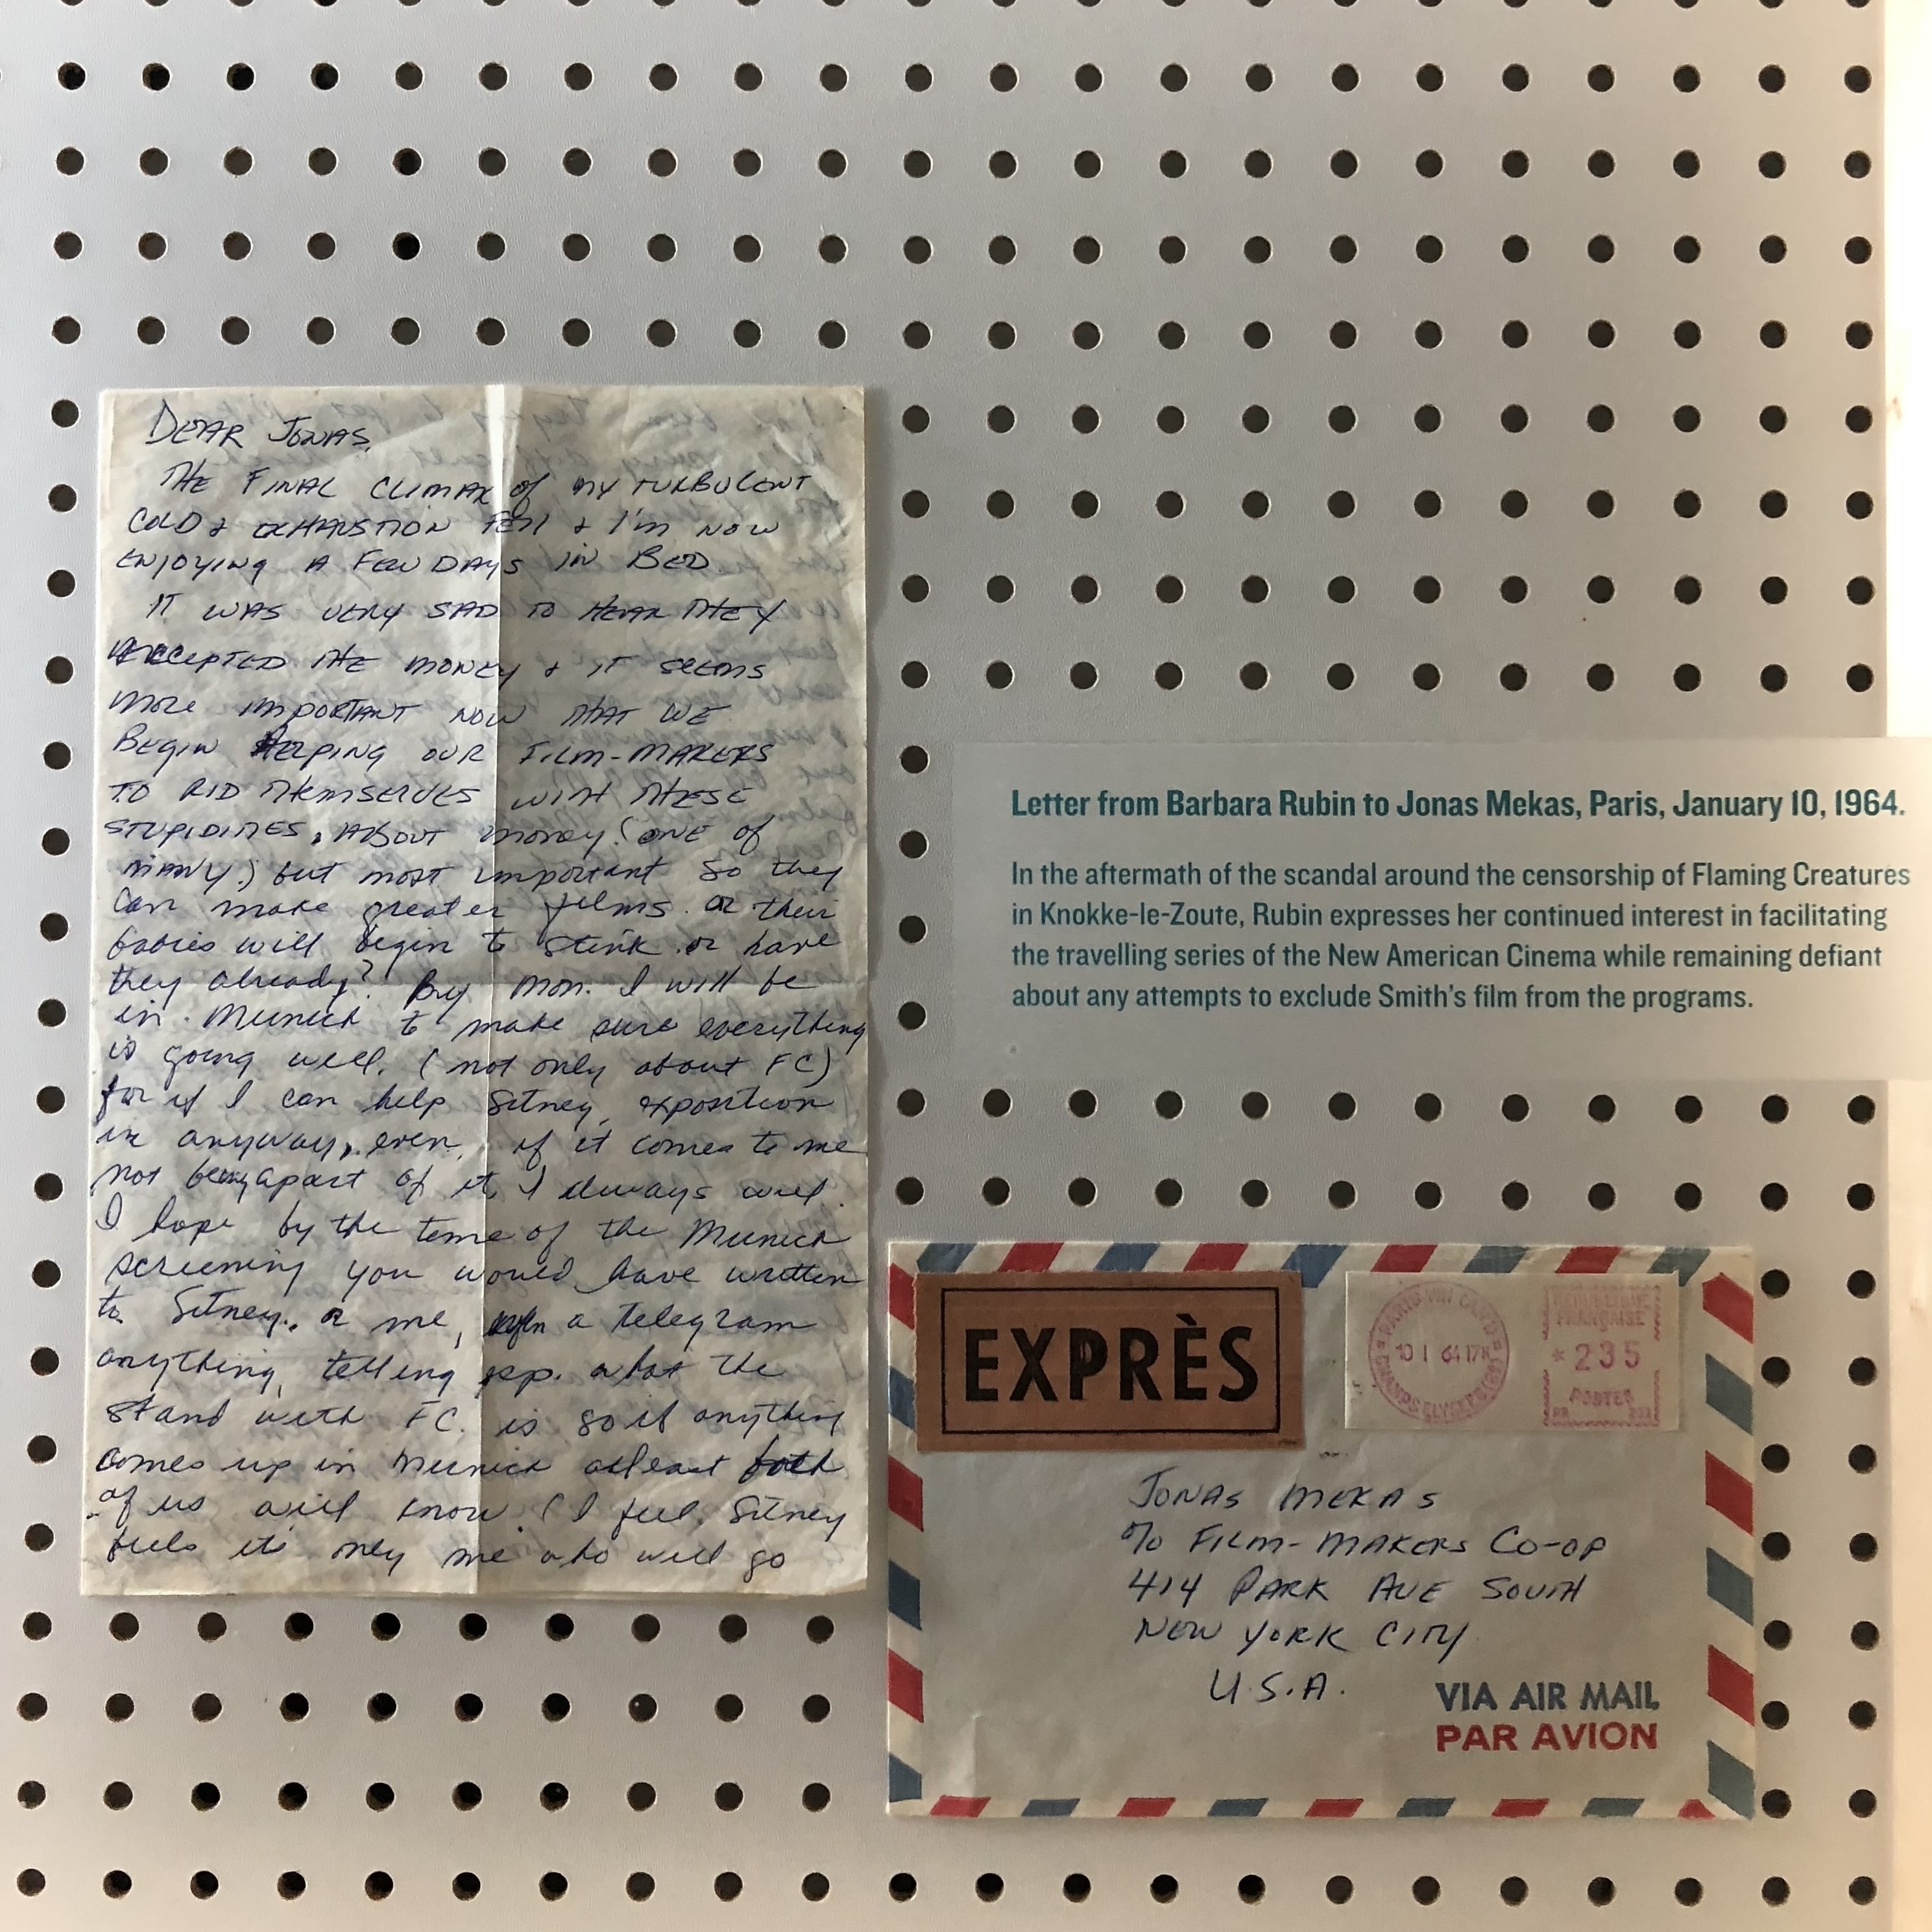 DEAR JONAS,
THE FINAL CLIMAX of MY TURBULENT
COLD & EXHAUSTION FELL & I'M NOW
ENJOYING A FEW DAYS IN BED.
IT WAS VERY SAD TO HEAR THEY
ACCEPTED THE MONEY & IT SEEMS
MORE IMPORTANT NOW THAT WE
BEGIN HELPING OUR FILM-MAKERS
TO RID THEMSELVES WITH THESE
STUPIDITIES, ABOUT money (ONE of
MANY.) but most important so they
can make greater films. or their
babies will begin to stink. or have
they already? By Mon. I will be
in Munich to make sure everything
is going well. (not only about FC)
for if I can help Sitney, exposition
in anyway, even, if it comes to me
not being apart of it, I always will.
I hope by the time of the Munich
screening you would have written
to Sitney. or me, a telegram
anything, telling pp. what the
stand with FC. is so if anything
comes up in Munich atleast both
of us will know. (I feel, Sitney
feels it's only me who will go
Letter from Barbara Rubin to Jonas Mekas, Paris, January 10, 1964.
In the aftermath of the scandal around the censorship of Flaming Creatures
in Knokke-le-Zoute, Rubin expresses her continued interest in facilitating
the travelling series of the New American Cinema while remaining defiant
about any attempts to exclude Smith's film from the programs.
EXPRÈS
10 1 64 17H
FRANÇAISE
*235
POSTES
JONAS MEKAS
c/o FILM-MAKERS CO-OP
414 PARK AVE SOUTH
NEW YORK CITY
U.S.A.
VIA AIR MAIL
PAR AVION